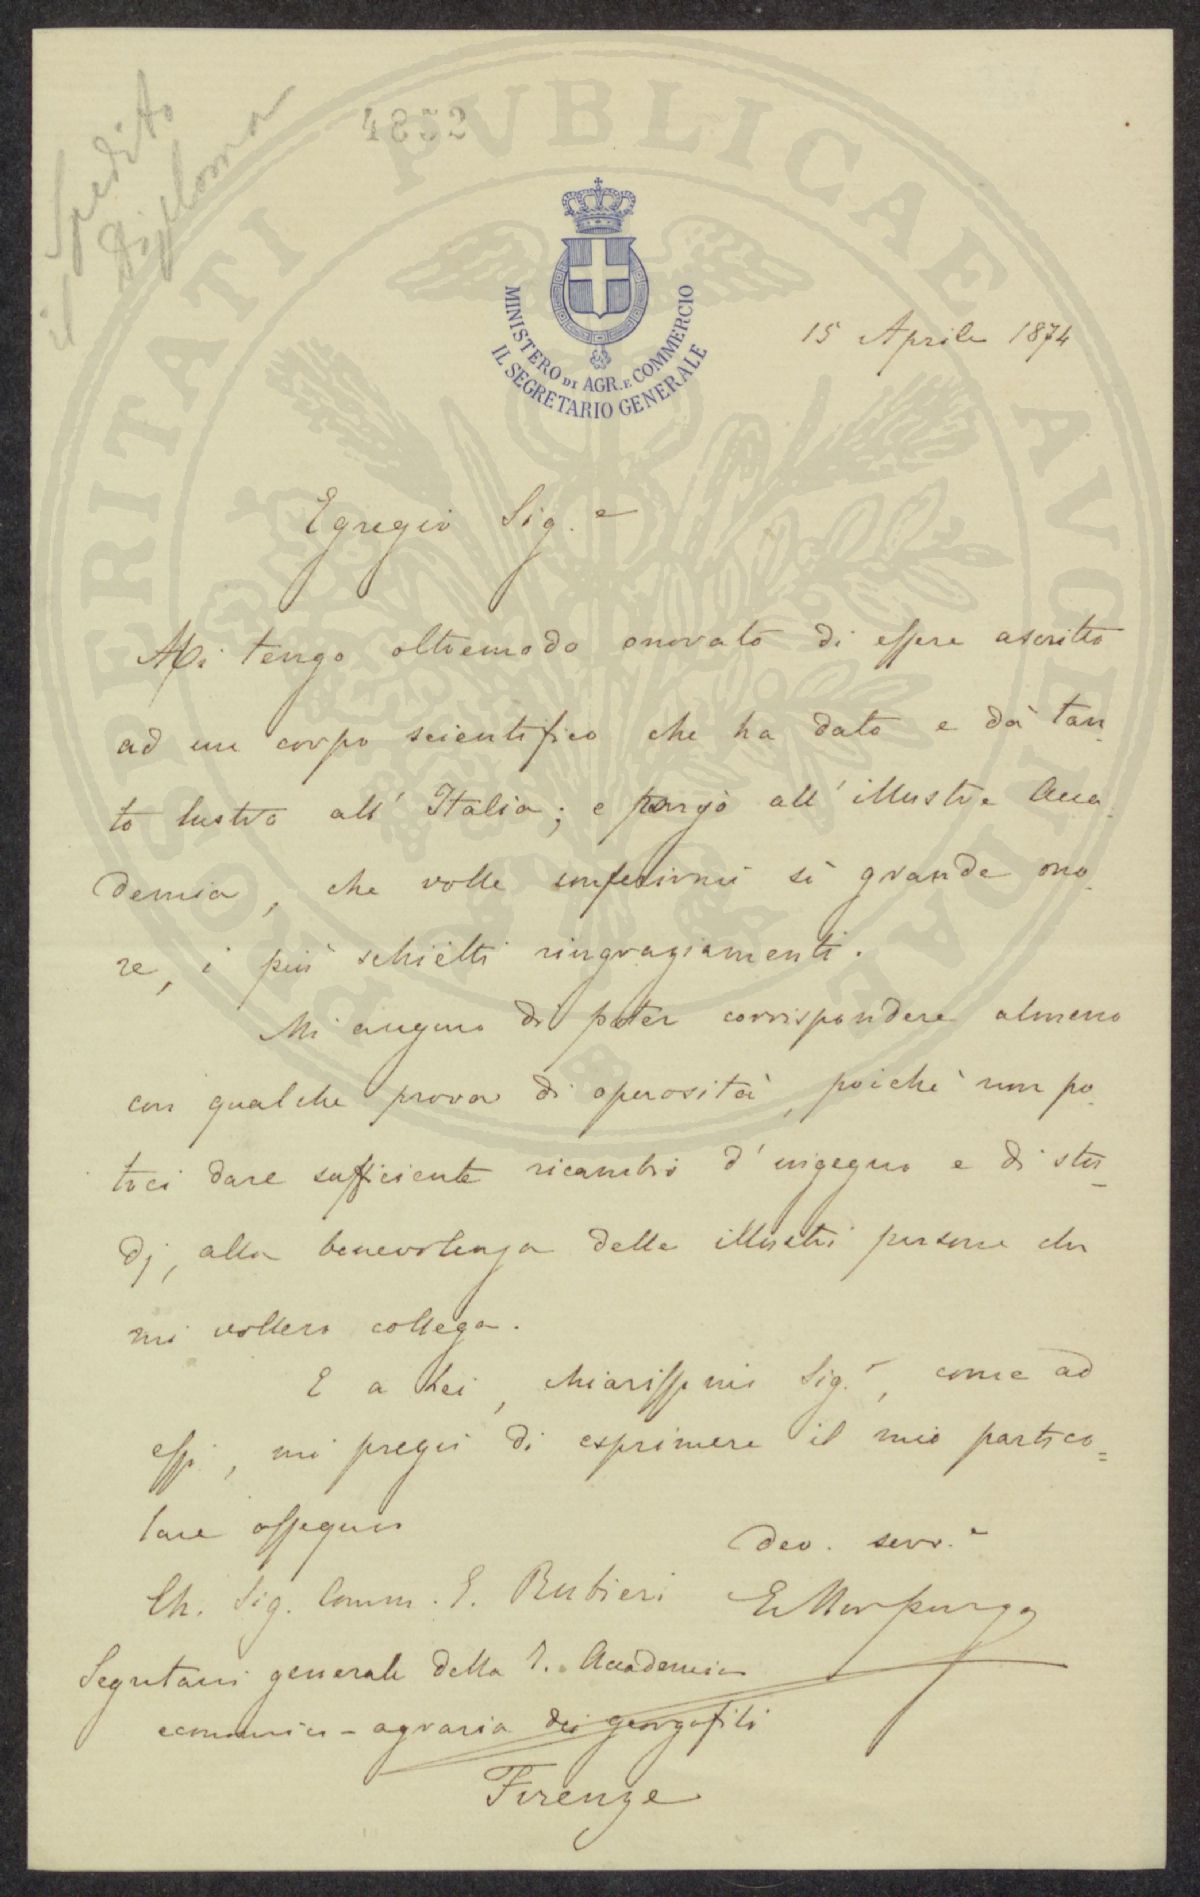 Spedito
il Diploma
4852
MINISTERO DI AGR. E COMMERCIO
IL SEGRETARIO GENERALE
15 Aprile 1874
Egregio Sig.e
Mi tengo oltremodo onorato di essere ascritto
ad un corpo scientifico che ha dato e dà tan-
to lustro all'Italia; e porgo all'illustre Acca-
demia, che volle conferirmi sì grande ono-
re, i più schietti ringraziamenti.
Mi auguro di poter corrispondere almeno
con qualche prova di operosità, poichè non po-
trei dare sufficiente ricambio d'ingegno e di stu-
dj, alla benevolenza delle illustri persone che
mi vollero collega.
E a Lei, chiarissimo Sig.r, come ad
essi, mi pregio di esprimere il mio partico=
lare ossequio
Dev. serv.e
EMorpurgo
Ch. Sig. Comm. E. Rubieri
Segretario generale della R. Accademia
economico-agraria dei georgofili
Firenze
PROSPERITATI PVBLICAE AVGENDAE